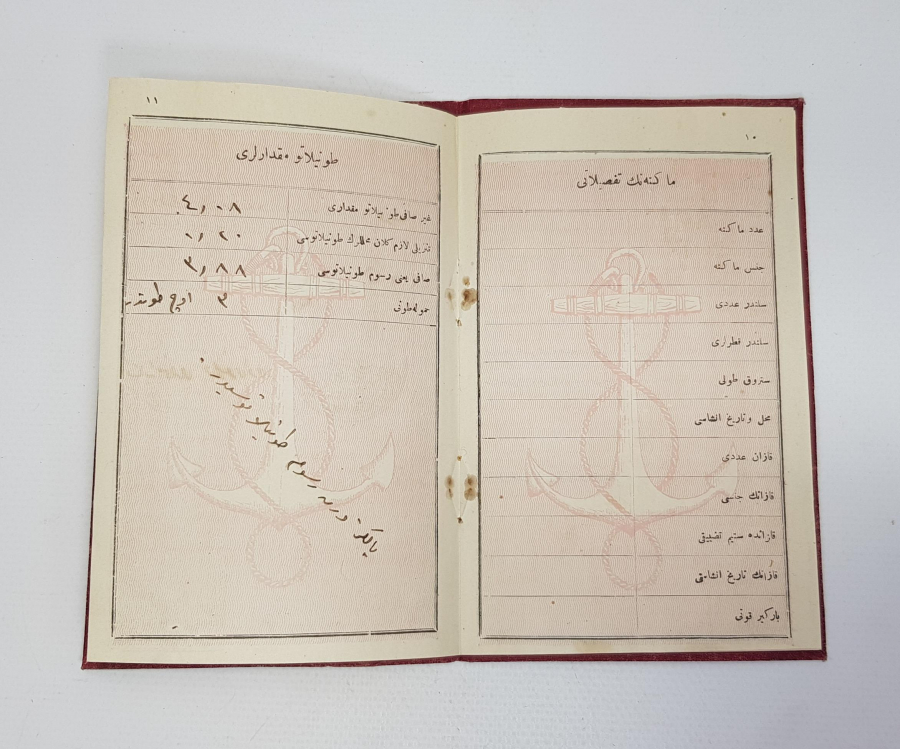 ١٠
ماكنه‌نك تفصيلاتى
عدد ماكنه
جنس ماكنه
سلندر عددى
سلندر قطرلرى
ستروق طولى
محل و تاريخ انشاسى
قازان عددى
قازانك جنسى
قازانده ستيم تضييقى
قازانك تاريخ انشاسى
باركير قوتى
١١
طونيلاتو مقدارلرى
غير صافى طونيلاتو مقدارى ٤,٠٨
تنزيلى لازم كلان محللرك طونيلاتوسى ٠,٢٠
صافى يعنى رسوم طونيلاتوسى ٣,٨٨
حموله طونى ٣ اوچ طوندر
يالكز درت رسوم طونيلاتوسيدر